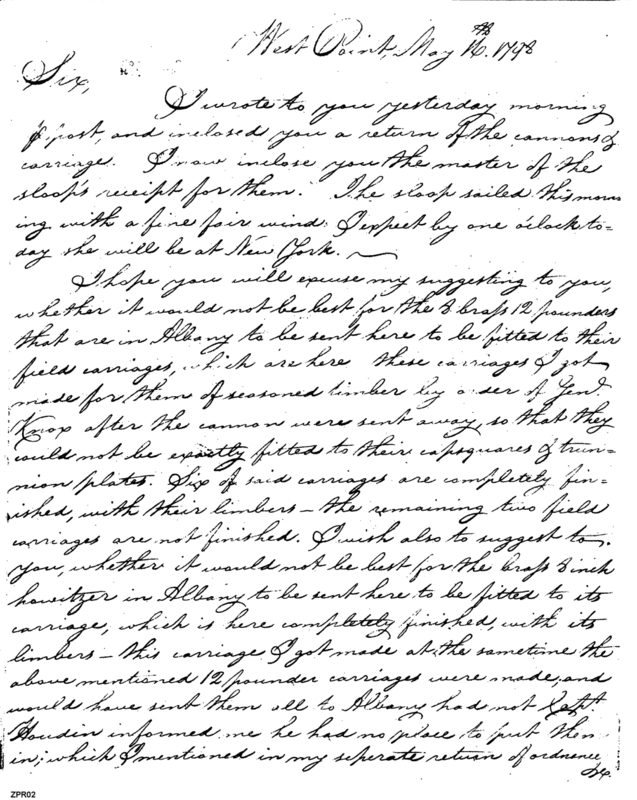 West Point, May 16th. 1798
Sir,
I wrote to you yesterday morning
p. post, and inclosed you a return of the cannons &
carriage. I now inclose you the master of the
sloop's receipt for them. The sloop sailed this morn
ing with a fine fair wind. I expect by one o'clock to=
day she will be at New York.
I hope you will excuse my suggesting to you,
whether it would not be best for the 8 brass 12 pounders
that are in Albany to be sent here to be fitted to their
field carriages, which are here these carriages I got
made for them of seasoned timber by order of Genl.
Knox after the cannon were sent away, so that they
could not be exactly fitted to their capsquares & trun=
nion plates. Six of said carriages are completely fin=
ished, with their limbers – the remaining two field
carriages are not finished. I wish also to suggest to
you, whether it would not be best for the brass 8 inch
howitzer in Albany to be sent here to be fitted to its
carriage, which is here completely finished, with its
limbers – this carriage I got made at the sametime the
above mentioned 12 pounder carriages were made, and
would have sent them all to Albany had not Capt.
Houdin informed me he had no place to put them
in; which I mentioned in my seperate return of ordnance
&c.
ZPR02